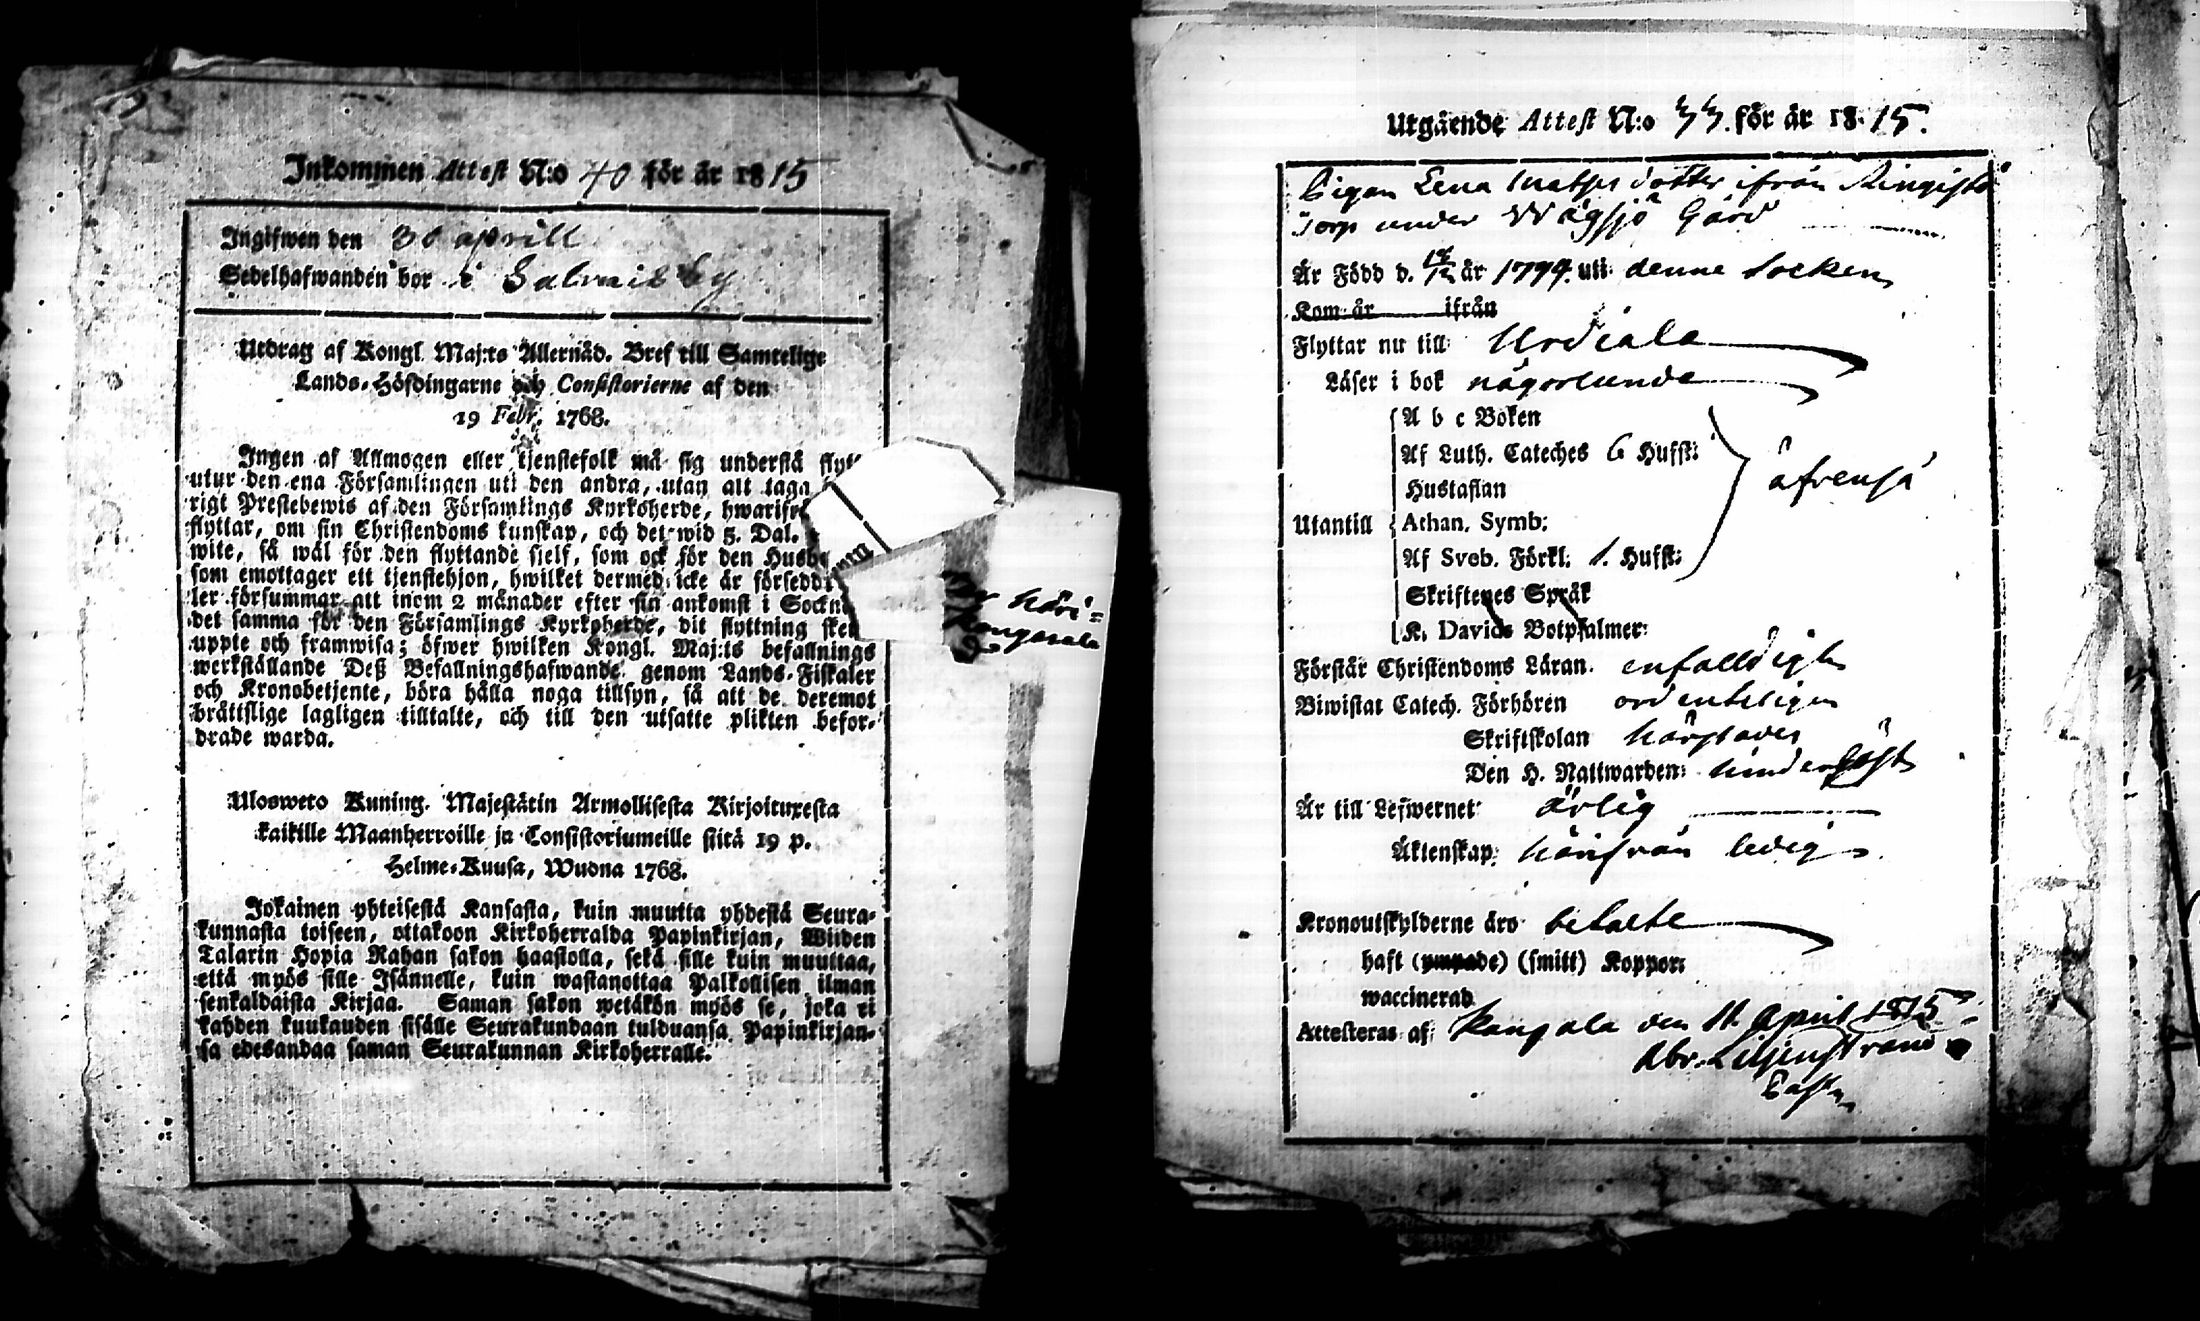 Inkommen Attest N:o 40 för år 1815
Ingifwen den 30 aprill
Sedelhafwanden bor i Salmis by
Utdrag af Kongl. Maj:ts Allernåd. Bref till Samtelige
Lands-Höfdingarne och Consistorierne af den
19 Febr. 1768.
Ingen af Allmogen eller tjenstefolk må sig understå flyt
utur den ena Församlingen uti den andra, utan att taga
rigt Prestebewis af den Församlings Kyrkoherde, hwarifr
flyttar, om sin Christendoms kunskap, och det wid 5. Dal.
wite, så wäl för den flyttande sielf, som ock för den Husb
som emottager ett tjenstehjon, hwilket dermed icke är försedd
ler försummar att inom 2 månader efter sin ankomst i Sockn
det samma för den Församlings Kyrkoherde, dit flyttning ske
uppte och framwisa; öfwer hwilken Kongl. Maj:ts befallnings
werkställande Deß Befallningshafwande genom Lands-Fiskaler
och Kronobetjente, böra hålla noga tillsyn, så att de deremot
bråttslige lagligen tilltalte, och till den utsatte plikten befor-
drade warda.
Ulosweto Kuning. Majestätin Armollisesta Kirjoituxesta
kaikille Maanherroille ja Consistoriumeille siitä 19 p.
Helme-Kuusa, Wuona 1768.
Jokainen yhteisestä Kansasta, kuin muutta yhdestä Seura-
kunnasta toiseen, ottakoon Kirkoherralda Papinkirjan, Wiiden
Talarin Hopia Rahan sakon haastolla, sekä sille kuin muuttaa,
että myös sille Isännelle, kuin wastanottaa Palkollisen ilman
senkaldaista Kirjaa. Saman sakon wetäkön myös se, joka ei
kahden kuukauden sisälle Seurakundaan tulduansa Papinkirjan-
sa edesandaa saman Seurakunnan Kirkoherralle.
häri-
Kangasala
Utgående Attest N:o 33. för år 1815.
Pigan Lena Matts dotter ifrån
Torp under Wägsjö Gård
Är Född d. år 1794. uti denne Socken
Kom år ifrån
Flyttar nu till Urdiala
Läser i bok någorlunda
A b c Boken
Af Luth. Cateches 6 Hufst:
Hustaflan
Utantill Athan. Symb:
Af Sveb. Förkl. 1. Hufst:
äfvenså
Skriftenes Språk
K. Davids Botpsalmer:
Förstår Christendoms Läran. enfalldigt
Biwistat Catech. Förhören ordenteligen
Skriftskolan
Den H. Nattwarden:
Är till Lefwernet ärlig
Äktenskap: härifrån ledig
Kronoutskylderne äro betalte
haft (ympade) (smitt) Koppor:
waccinerad
Attesteras af: Kangsala den 11. April 1815
Abr. Liljenstrand
Past.